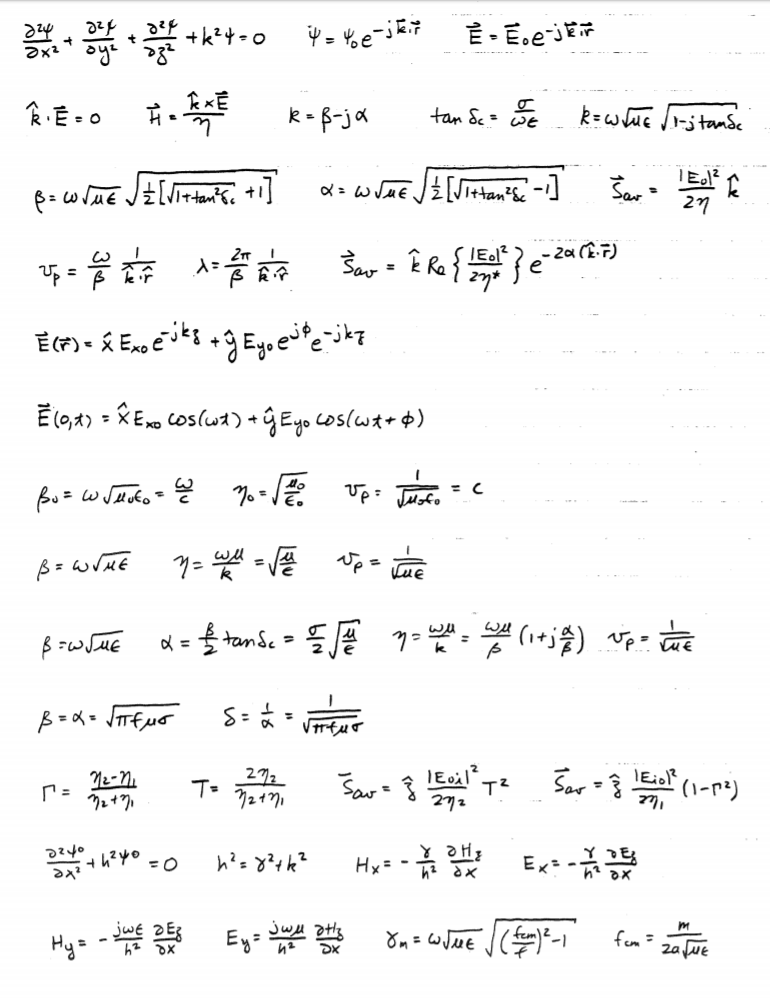 ∂²ψ/∂x² + ∂²ψ/∂y² + ∂²ψ/∂z² + k²ψ = 0    ψ = ψ₀e^(-jk⃗·r⃗)    E⃗ = E⃗₀e^(-jk⃗·r⃗)
k̂·E⃗ = 0    H⃗ = (k̂×E⃗)/η    k = β-jα    tan δc = σ/(ωε)    k = ω√(με) √(1-j tanδc)
β = ω√(με) √(½[√(1+tan²δc) +1])    α = ω√(με) √(½[√(1+tan²δc) -1])    S⃗av = |E₀|²/(2η) k̂
vp = (ω/β) 1/(k̂·r̂)    λ = (2π/β) 1/(k̂·r̂)    S⃗av = k̂ Re{|E₀|²/(2η*)} e^(-2α(k̂·r⃗))
E⃗(r⃗) = x̂ Exo e^(-jkz) + ŷ Eyo e^(jϕ) e^(-jkz)
E⃗(0,t) = x̂ Exo cos(ωt) + ŷ Eyo cos(ωt + ϕ)
β₀ = ω√(μ₀ε₀) = ω/c    η₀ = √(μ₀/ε₀)    vp = 1/√(μ₀ε₀) = c
β = ω√(με)    η = ωμ/k = √(μ/ε)    vp = 1/√(με)
β = ω√(με)    α = (β/2) tanδc = (σ/2)√(μ/ε)    η = ωμ/k = (ωμ/β)(1+j α/β)    vp = 1/√(με)
β = α = √(πfμσ)    δ = 1/α = 1/√(πfμσ)
Γ = (η₂-η₁)/(η₂+η₁)    T = 2η₂/(η₂+η₁)    S⃗av = ẑ |Eoi|²/(2η₂) T²    S⃗av = ẑ |Eio|²/(2η₁) (1-Γ²)
∂²ψ⁰/∂x² + h²ψ⁰ = 0    h² = γ²+k²    Hx = -(γ/h²) ∂Hz/∂x    Ex = -(γ/h²) ∂Ez/∂x
Hy = -(jωε/h²) ∂Ez/∂x    Ey = (jωμ/h²) ∂Hz/∂x    γm = ω√(με) √((fcm/f)²-1)    fcm = m/(2a√(με))